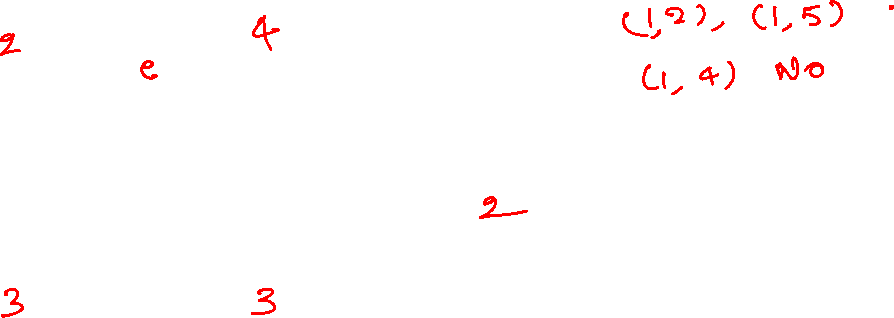 2 4 (1,2), (1,5)
e (1,4) NO
2
3 3